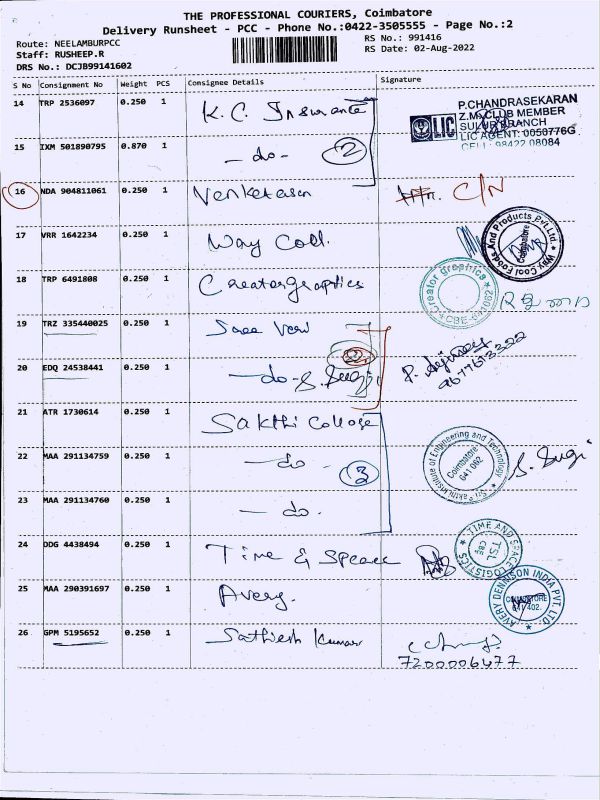 THE PROFESSIONAL COURIERS, Coimbatore
Delivery Runsheet - PCC - Phone No.:0422-3505555 - Page No.:2
Route: NEELAMBURPCC
RS No.: 991416
Staff: RUSHEEP.R
RS Date: 02-Aug-2022
DRS No.: DCJB99141602
S No Consignment No Weight PCS Consignee Details Signature
14 TRP 2536097 0.250 1 K.C. Insurance
P.CHANDRASEKARAN
Z.M's CLUB MEMBER
LIC SULUR BRANCH
LIC AGENT: 0050776G
CELL: 98422 08084
15 IXM 501890795 0.870 1 - do - 2
16 NDA 904811061 0.250 1 Venketesan C/N
17 VRR 1642234 0.250 1 Way Cool.
Way Cool Foods And Products Pvt. Ltd. * Coimbatore
18 TRP 6491808 0.250 1 Creatorgraphics
Creator graphics * CBE-641062 *
19 TRZ 335440025 0.250 1 Sree Veni
20 EDQ 24538441 0.250 1 - do - S. Sugi 2
9677613322
21 ATR 1730614 0.250 1 Sakthi College
22 MAA 291134759 0.250 1 - do - 3 S. Sugi
Sri Sakthi Institute of Engineering and Technology * Coimbatore 641 062
23 MAA 291134760 0.250 1 - do.
24 DDG 4438494 0.250 1 Time & Speace
TIME AND SPACE LOGISTICS * TSL CBE
25 MAA 290391697 0.250 1 Avery.
AVERY DENNISON INDIA PVT. LTD. * COIMBATORE 641 402.
26 GPM 5195652 0.250 1 Sathiesh Kumar
7200006477